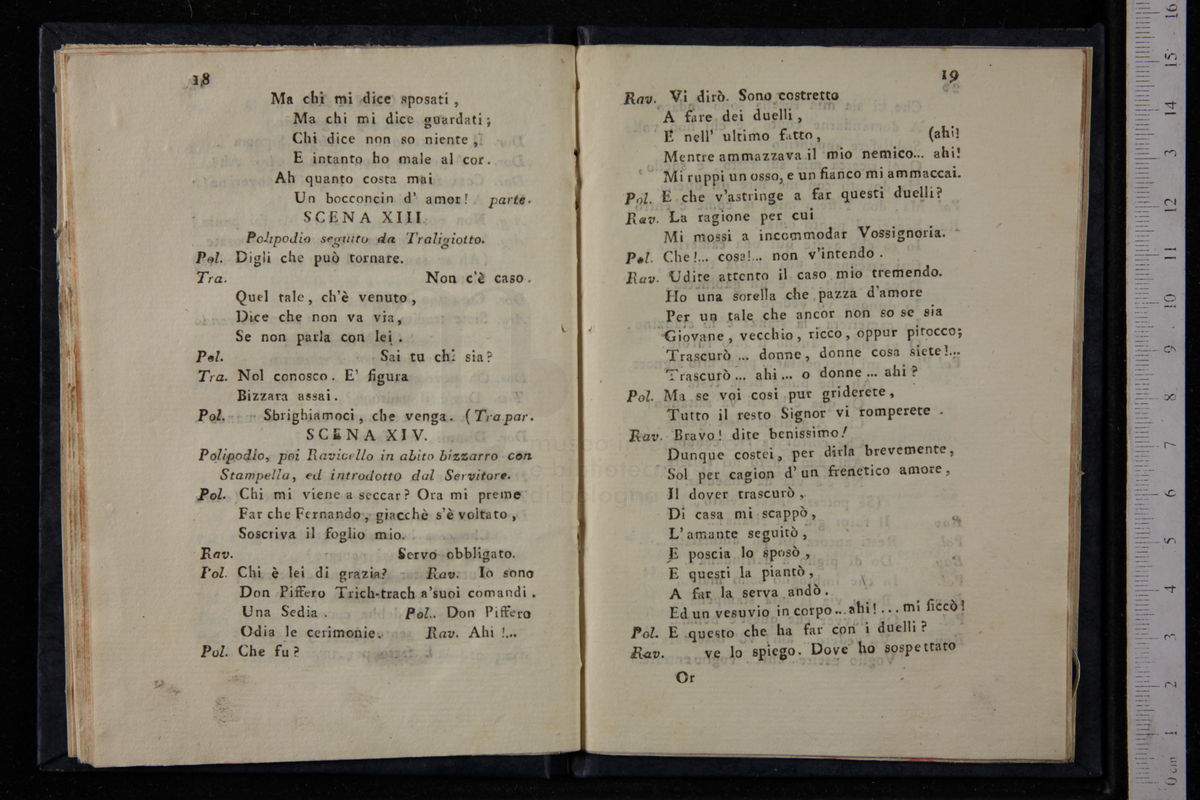 18
Ma chi mi dice sposati ,
Ma chi mi dice guardati ;
Chi dice non so niente ,
E intanto ho male al cor.
Ah quanto costa mai
Un bocconcin d' amor! parte.
SCENA XIII.
Polipodio seguito da Traligiotto.
Pol. Digli che può tornare.
Tra. Non c'è caso.
Quel tale, ch'è venuto,
Dice che non va via,
Se non parla con lei .
Pol. Sai tu chi sia?
Tra. Nol conosco. E' figura
Bizzara assai.
Pol. Sbrighiamoci, che venga. (Tra par.
SCENA XIV.
Polipodio, poi Ravicello in abito bizzarro con
Stampella, ed introdotto dal Servitore.
Pol. Chi mi viene a seccar? Ora mi preme
Far che Fernando, giacchè s'è voltato ,
Soscriva il foglio mio.
Rav. Servo obbligato.
Pol. Chi è lei di grazia? Rav. Io sono
Don Piffero Trich-trach a'suoi comandi .
Una Sedia . Pol.. Don Piffero
Odia le cerimonie. Rav. Ahi !...
Pol. Che fu?
19
Rav. Vi dirò. Sono costretto
A fare dei duelli ,
E nell' ultimo fatto, (ahi!
Mentre ammazzava il mio nemico... ahi!
Mi ruppi un osso, e un fianco mi ammaccai.
Pol. E che v'astringe a far questi duelli?
Rav. La ragione per cui
Mi mossi a incommodar Vossignoria.
Pol. Che!... cosa!... non v'intendo .
Rav. Udite attento il caso mio tremendo.
Ho una sorella che pazza d'amore
Per un tale che ancor non so se sia
Giovane, vecchio, ricco, oppur pitocco;
Trascurò ... donne, donne cosa siete!...
Trascurò ... ahi ... o donne ... ahi ?
Pol. Ma se voi così pur griderete,
Tutto il resto Signor vi romperete .
Rav. Bravo! dite benissimo!
Dunque costei, per dirla brevemente,
Sol per cagion d' un frenetico amore,
Il dover trascurò,
Di casa mi scappò,
L' amante seguitò,
E poscia lo sposò ,
E questi la piantò,
A far la serva andò.
Ed un vesuvio in corpo... ahi! ... mi ficcò!
Pol. E questo che ha far con i duelli?
Rav. ve lo spiego. Dove ho sospettato
Or